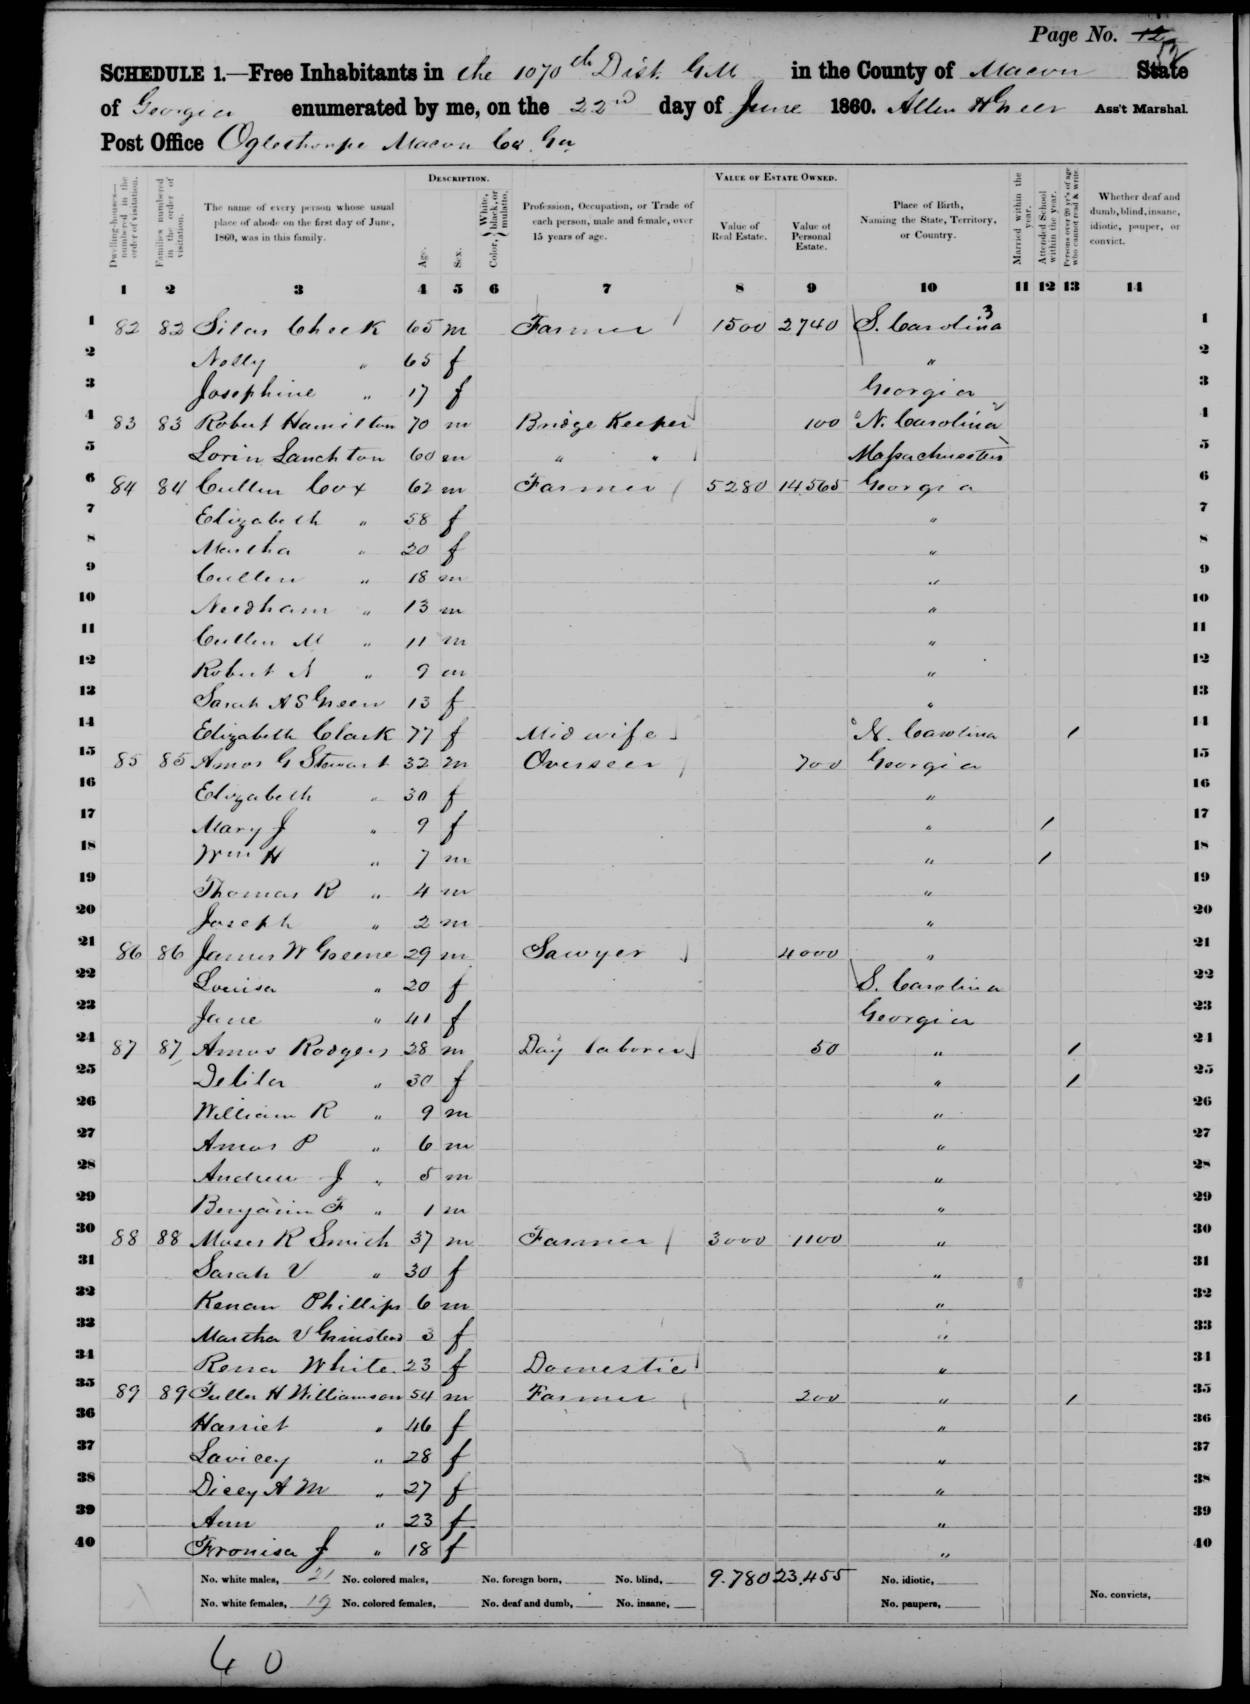 Page No. 12
52
SCHEDULE 1.—Free Inhabitants in the 1070th Dist. G.M in the County of Macon State
of Georgia enumerated by me, on the 22nd day of June 1860. Allen H Greer Ass't Marshal.
Post Office Oglethorpe Macon Co. Ga
Dwelling-houses—numbered in the order of visitation.
Families numbered in the order of visitation.
The name of every person whose usual place of abode on the first day of June, 1860, was in this family.
DESCRIPTION.
Age.
Sex.
Color, { White, black, or mulatto.
Profession, Occupation, or Trade of each person, male and female, over 15 years of age.
VALUE OF ESTATE OWNED.
Value of Real Estate.
Value of Personal Estate.
Place of Birth, Naming the State, Territory, or Country.
Married within the year.
Attended School within the year.
Persons over 20 y'rs of age who cannot read & write.
Whether deaf and dumb, blind, insane, idiotic, pauper, or convict.
1 2 3 4 5 6 7 8 9 10 11 12 13 14
1 82 82 Silas Cheek 65 m Farmer 1500 2740 S. Carolina 3 1
2 " 65 f " 2
3 Josephine " 17 f Georgia 3
4 83 83 Robert Hamilton 70 m Bridge Keeper 100 N. Carolina 4
5 Lorin Lanckton 60 m " " Massachusetts 5
6 84 84 Cullen Cox 62 m Farmer 5280 14565 Georgia 6
7 Elizabeth " 58 f " 7
8 Martha " 20 f " 8
9 Cullen " 18 m " 9
10 Needham " 13 m " 10
11 Cullen M " 11 m " 11
12 Robert A " 9 m " 12
13 Sarah A S Green 13 f " 13
14 Elizabeth Clark 77 f Midwife N. Carolina / 14
15 85 85 Amos G Stewart 32 m Overseer 700 Georgia 15
16 Elizabeth " 30 f " 16
17 Mary J " 9 f " / 17
18 Wm H " 7 m " / 18
19 Thomas R " 4 m " 19
20 Joseph " 2 m " 20
21 86 86 James W Greene 29 m Sawyer 4000 " 21
22 Louisa " 20 f S. Carolina 22
23 Jane " 41 f Georgia 23
24 87 87 Amos Rodgers 28 m Day laborer 50 " / 24
25 Delila " 30 f " / 25
26 William R " 9 m " 26
27 Amos P " 6 m " 27
28 Andrew J " 5 m " 28
29 Benjamin F " 1 m " 29
30 88 88 Moses R Smith 37 m Farmer 3000 1100 " 30
31 Sarah V " 30 f " 31
32 Kenan Phillips 6 m " 32
33 Martha V Grinstead 3 f " 33
34 Rena White 23 f Domestic " 34
35 89 89 Fuller H Williamson 54 m Farmer 200 " / 35
36 Harriet " 46 f " 36
37 Lavicey " 28 f " 37
38 Dicey A M " 27 f " 38
39 Ann " 23 f " 39
40 Fronisa J " 18 f " 40
No. white males, 21 No. colored males, No. foreign born, No. blind, 9.780 23,455 No. idiotic,
No. white females, 19 No. colored females, No. deaf and dumb, No. insane, No. paupers, No. convicts,
40